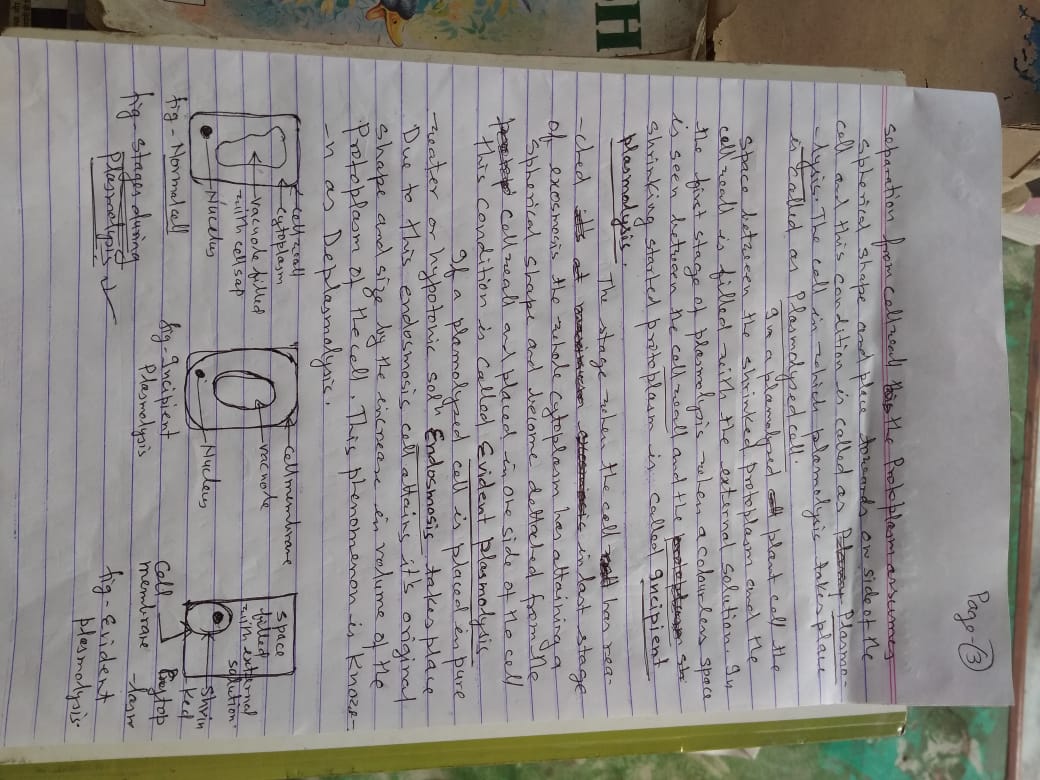 Page (3)
separation from cell wall the Protoplasm assumes
spherical shape and place towards on side of the
cell and this condition is called as Plasmo-
-lysis. The cell in which plasmolysis takes place
is called as Plasmolyzed cell.
In a plamolyzed plant cell the
space between the shrinked protoplasm and the
cell wall is filled with the external solution. In
the first stage of plasmolysis when a colourless space
is seen between the cell wall and the
shrinking started protoplasm is called Incipient
plasmolysis.
The stage when the cell has rea-
-ched in last stage
of exosmosis the whole cytoplasm has attaining a
spherical shape and become dettached from the
cell wall and placed in one side of the cell
this condition is called Evident plasmolysis
If a plamolyzed cell is placed in pure
water or hypotonic solⁿ Endosmosis takes place
Due to this endosmosis cell attains it's original
shape and size by the increase in volume of the
Protoplasm of the cell. This phenomenon is Know-
-n as Deplasmolysis.
cell wall
cytoplasm
vacuole filled
with cell sap
Nucelus
fig - Normal cell
fig - stages during
Plasmolysis
cell membrane
vacuole
Nucleus
fig - Incipient
Plasmolysis
space
filled
with external
solution.
Shrin
ked
Cytop
-lasm
Cell
membrane
fig - Evident
plasmolysis.
H